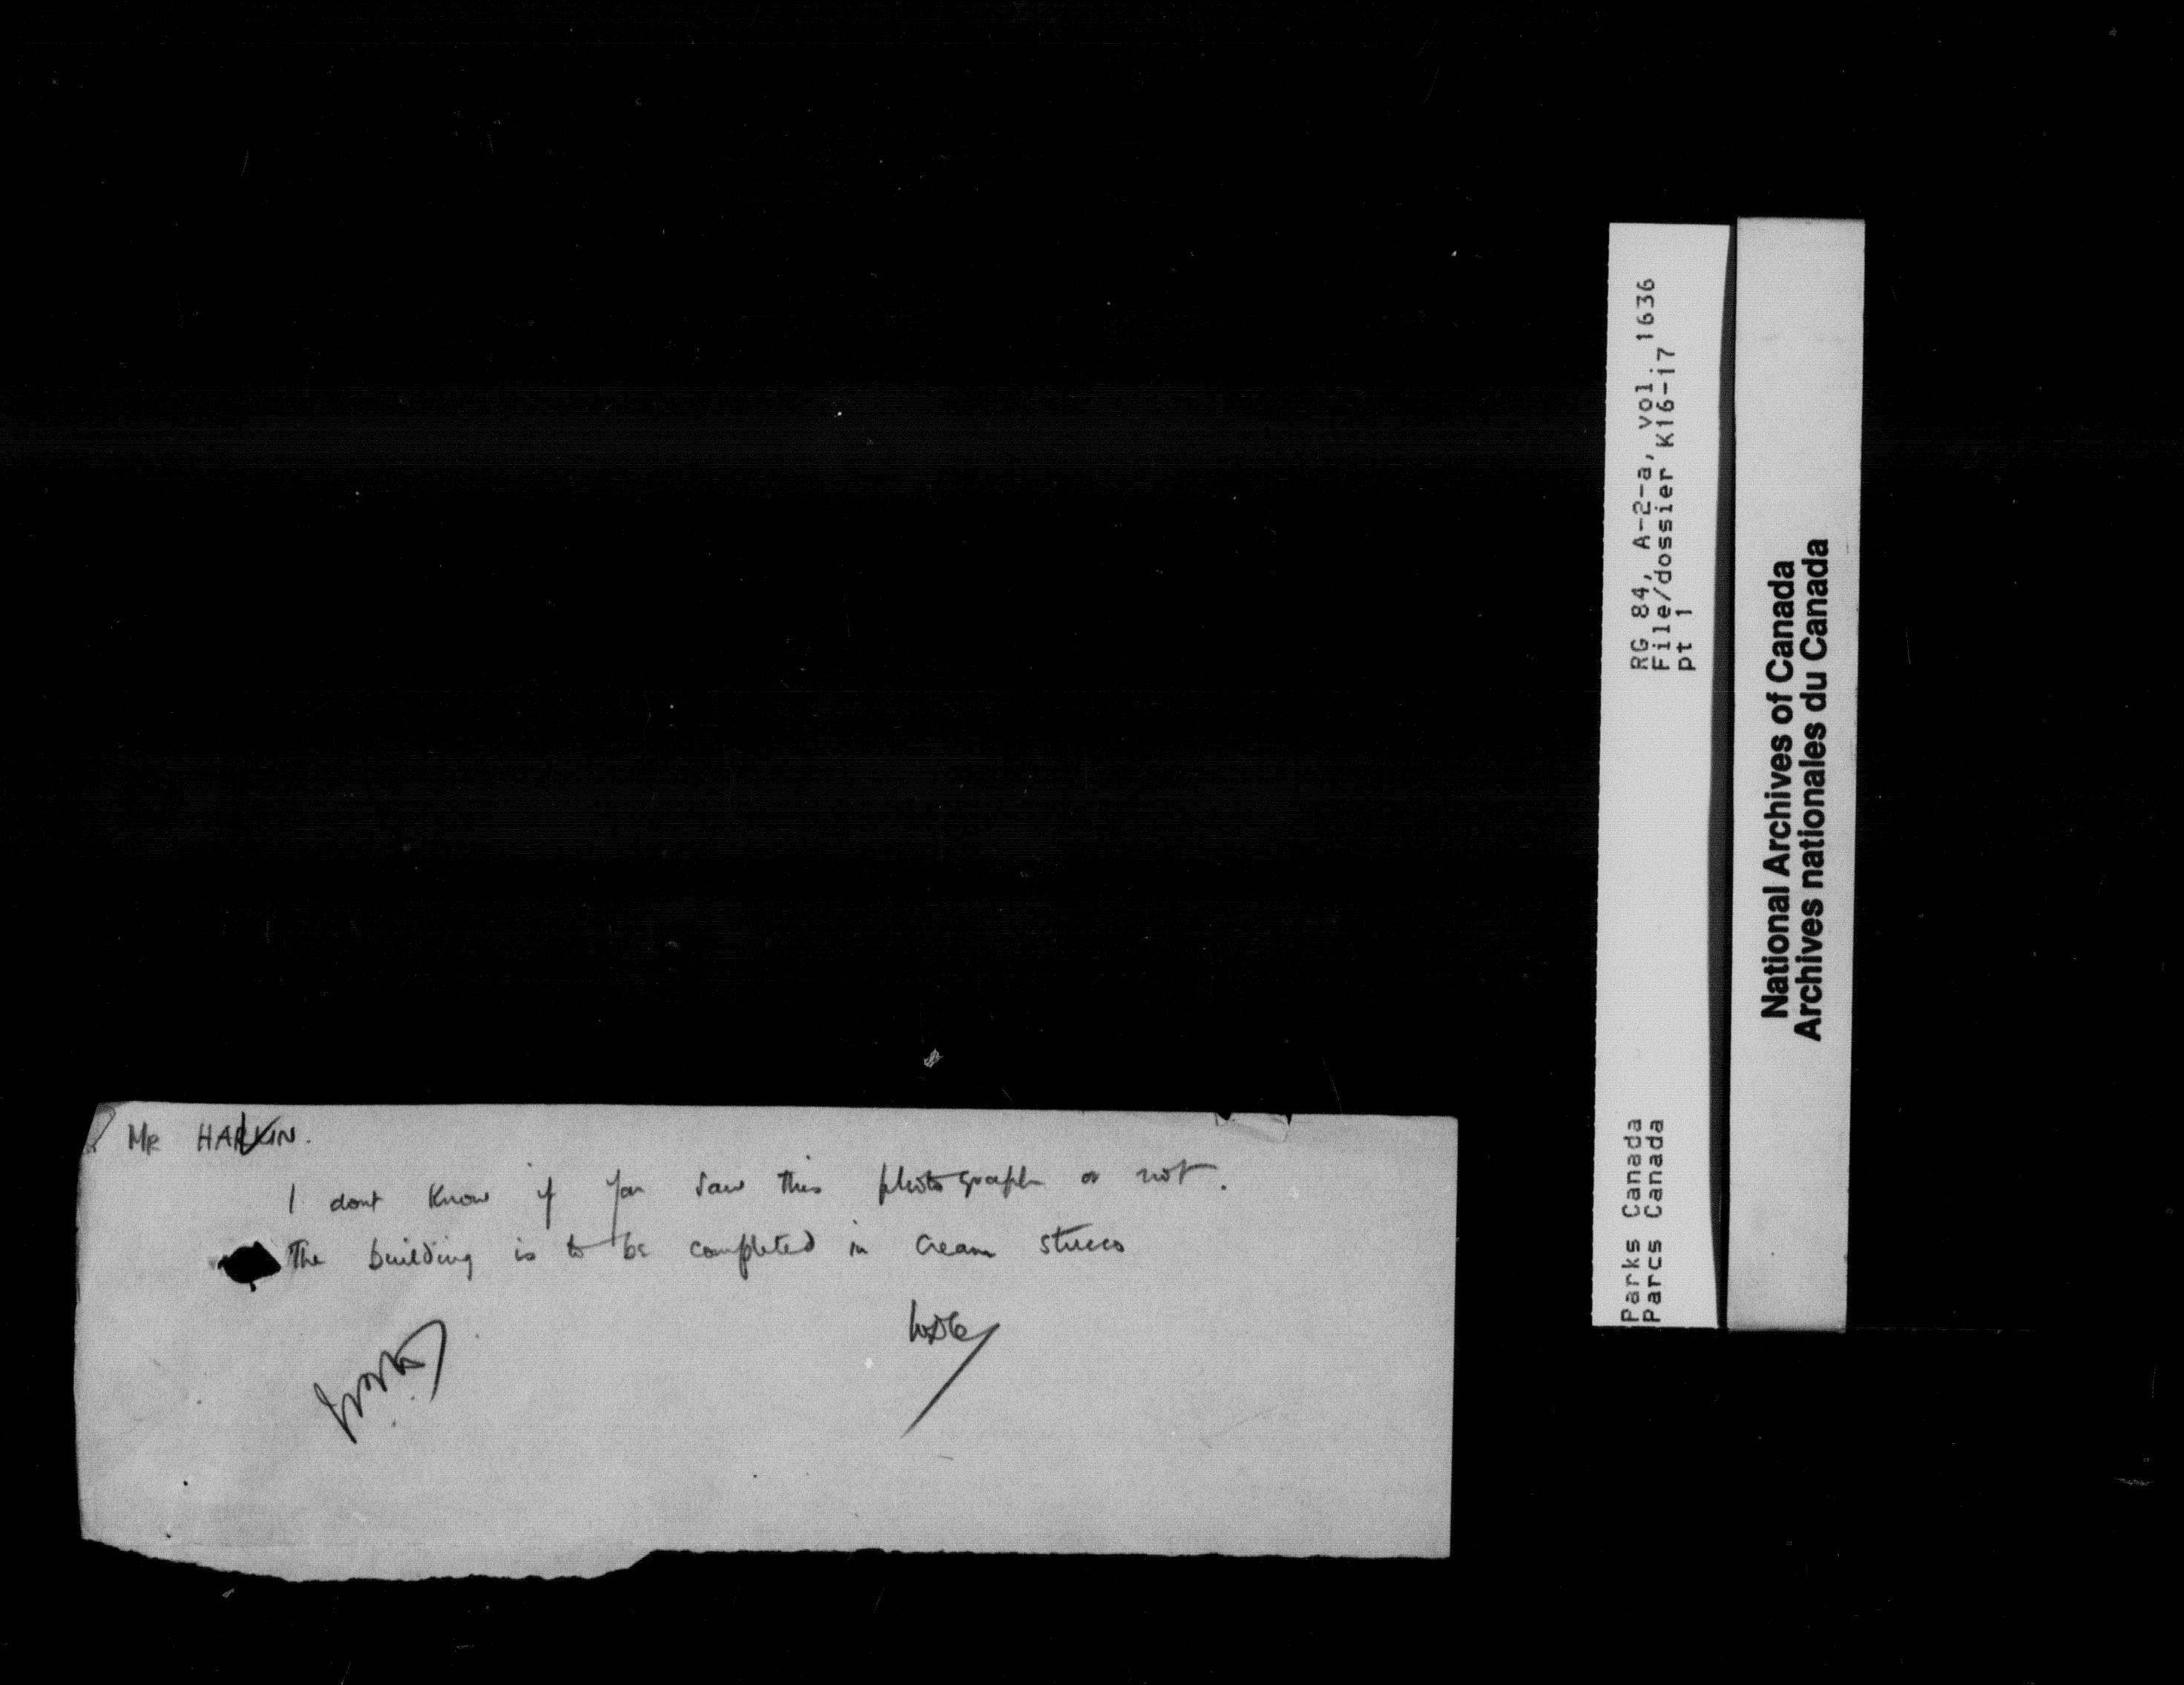 Mr HARKIN.
I dont know if you saw this photograph or not.
The building is to be completed in cream stucco
Parks Canada
Parcs Canada
RG 84, A-2-a, vol. 1636
File/dossier K16-17
pt 1
National Archives of Canada
Archives nationales du Canada